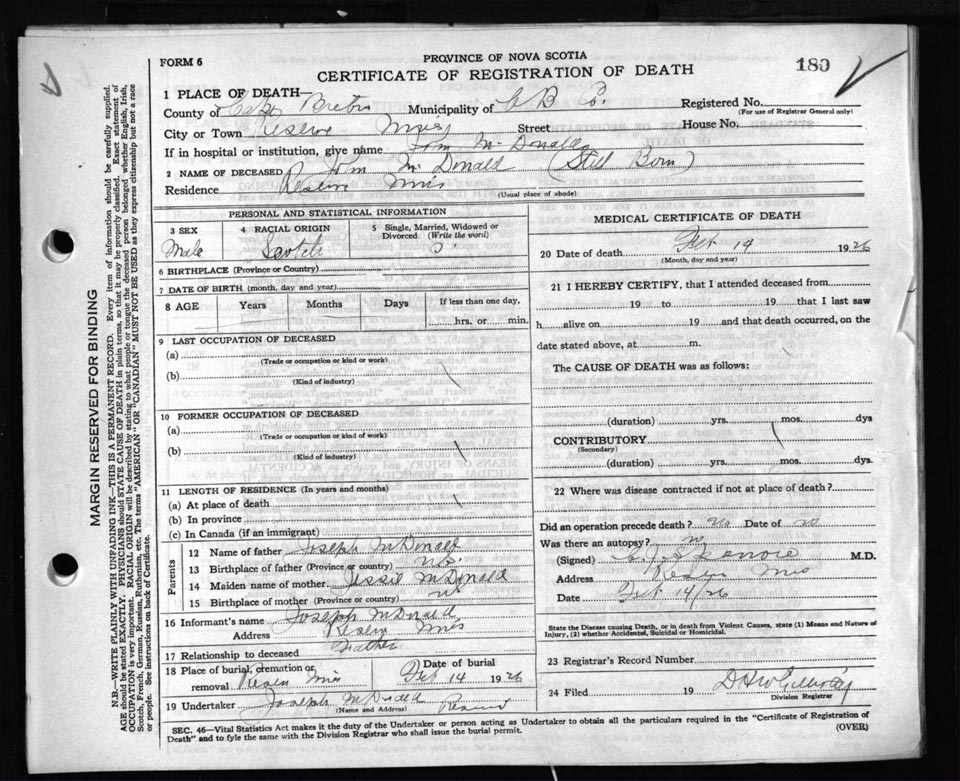 FORM 6
PROVINCE OF NOVA SCOTIA
CERTIFICATE OF REGISTRATION OF DEATH
189
1 PLACE OF DEATH—
County of Cape Breton Municipality of C B Co. Registered No.
(For use of Registrar General only)
City or Town Reserve Mines Street House No.
If in hospital or institution, give name McDonald
2 NAME OF DECEASED McDonald (Still Born)
Residence Reserve Mines
(Usual place of abode)
PERSONAL AND STATISTICAL INFORMATION
3 SEX Male
4 RACIAL ORIGIN Scotch
5 Single, Married, Widowed or Divorced (Write the word) S
6 BIRTHPLACE (Province or Country)
7 DATE OF BIRTH (month, day and year)
8 AGE Years Months Days If less than one day,
hrs. or min.
9 LAST OCCUPATION OF DECEASED
(a)
(Trade or occupation or kind or work)
(b)
(Kind of industry)
10 FORMER OCCUPATION OF DECEASED
(a)
(Trade or occupation or kind of work)
(b)
(Kind of industry)
11 LENGTH OF RESIDENCE (In years and months)
(a) At place of death
(b) In province
(c) In Canada (if an immigrant)
Parents
12 Name of father Joseph McDonald
13 Birthplace of father (Province or country) NS
14 Maiden name of mother Jessie McDonald
15 Birthplace of mother (Province or country)
16 Informant's name Joseph McDonald
Address Reserve Mines
17 Relationship to deceased Father
18 Place of burial, cremation or removal Reserve Mines Date of burial Feb 14 1926
19 Undertaker Joseph McDonald Reserve
(Name and Address)
MEDICAL CERTIFICATE OF DEATH
20 Date of death Feb 14 1926
(Month, day and year)
21 I HEREBY CERTIFY, that I attended deceased from
19 to 19 that I last saw
h alive on 19 and that death occurred, on the
date stated above, at m.
The CAUSE OF DEATH was as follows:
(duration) yrs. mos. dys
CONTRIBUTORY
(Secondary)
(duration) yrs. mos. dys
22 Where was disease contracted if not at place of death?
Did an operation precede death? no Date of no
Was there an autopsy? no
(Signed) M.D.
Address Reserve Mines
Date Feb 14/26
State the Disease causing Death, or in death from Violent Causes, state (1) Means and Nature of
Injury, (2) whether Accidental, Suicidal or Homicidal.
23 Registrar's Record Number
24 Filed 19
Division Registrar
SEC. 46—Vital Statistics Act makes it the duty of the Undertaker or person acting as Undertaker to obtain all the particulars required in the "Certificate of Registration of
Death" and to fyle the same with the Division Registrar who shall issue the burial permit. (OVER)
MARGIN RESERVED FOR BINDING
N.B.—WRITE PLAINLY WITH UNFADING INK—THIS IS A PERMANENT RECORD. Every item of information should be carefully supplied.
AGE should be stated EXACTLY. PHYSICIANS should STATE CAUSE OF DEATH in plain terms, so that it may be properly classified. Exact statement of
OCCUPATION is very important. RACIAL ORIGIN will be described by stating to what people or tongue the deceased person belonged whether English, Irish,
Scotch, French, German, Russian, Ruthenian, etc. The terms "AMERICAN" OR "CANADIAN" MUST NOT BE USED as they express citizenship but not a race
or people. See instructions on back of Certificate.